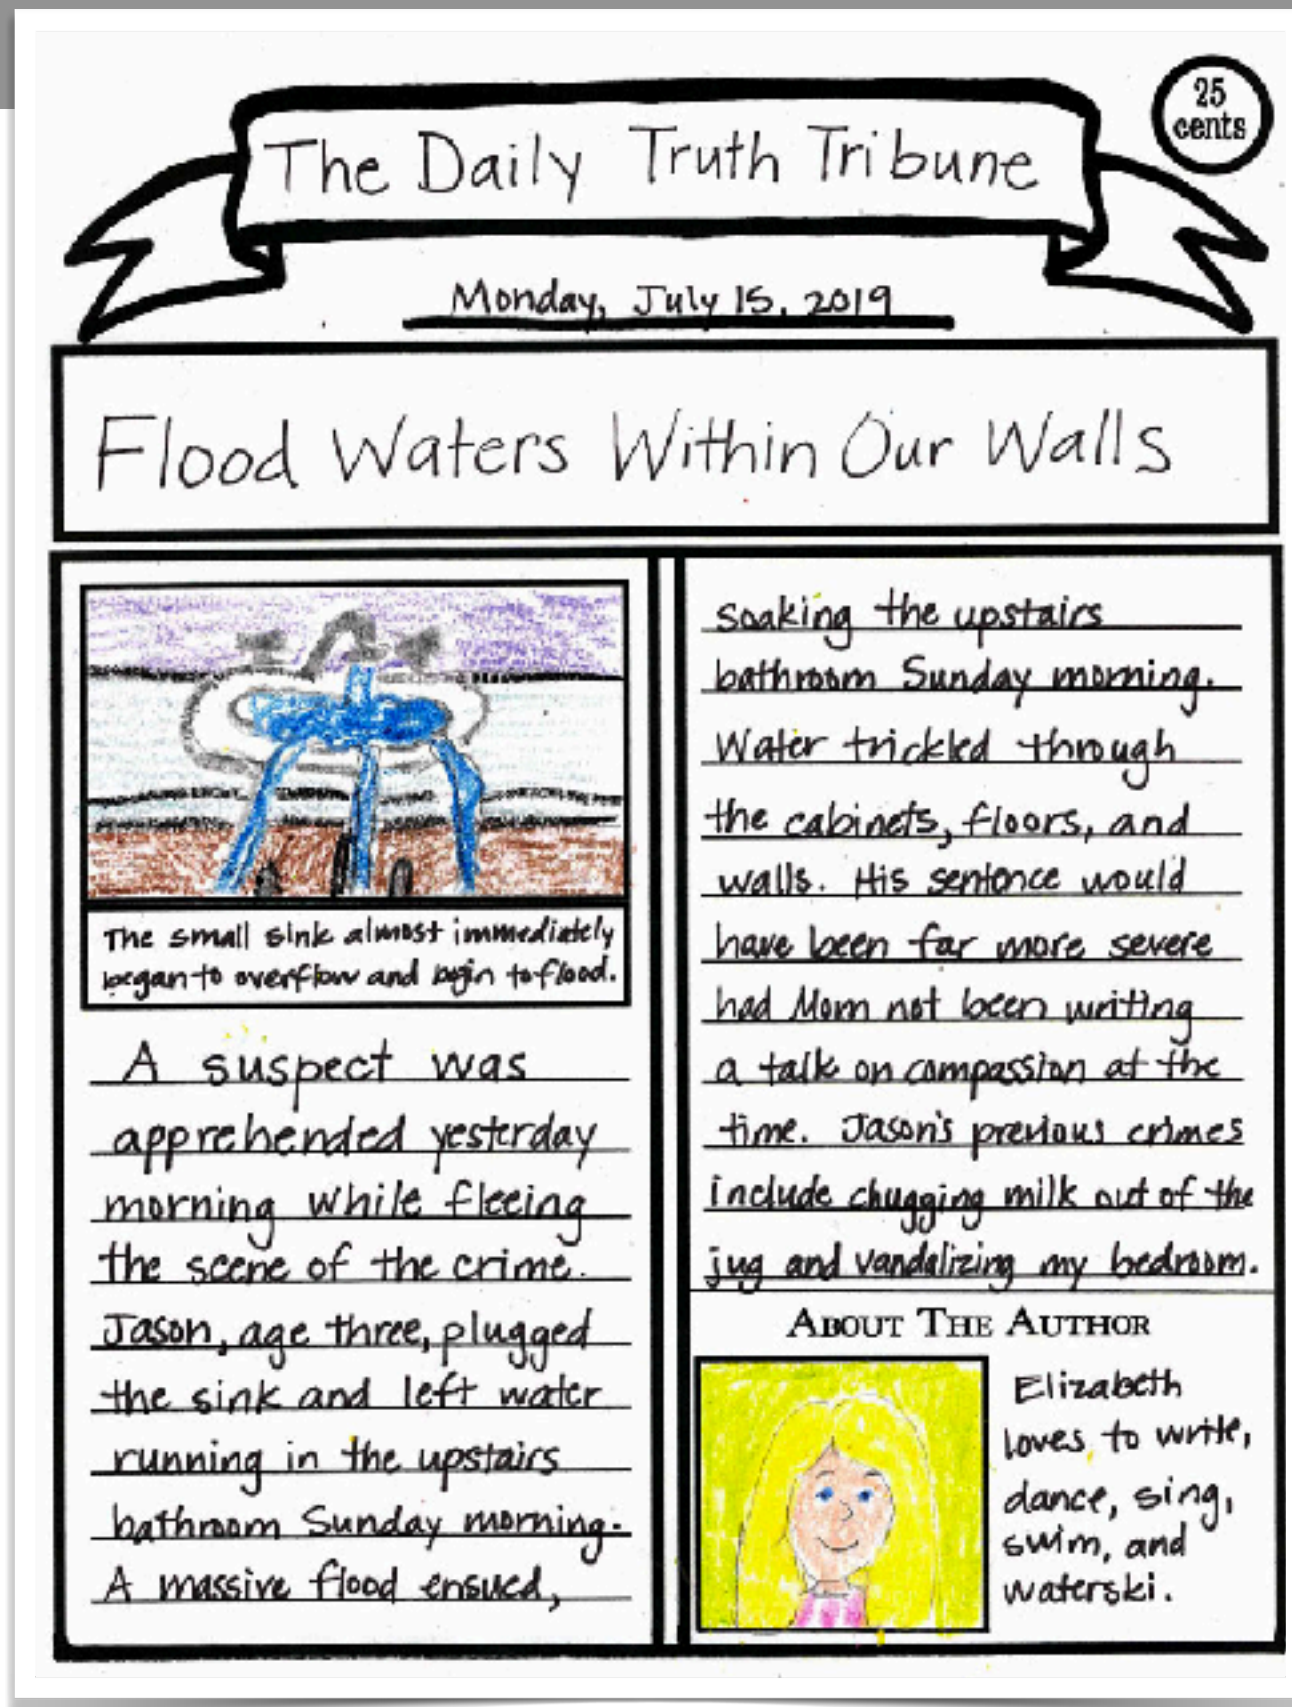 25
cents
The Daily Truth Tribune
Monday, July 15, 2019
Flood Waters Within Our Walls
The small sink almost immediately
began to overflow and begin to flood.
A suspect was
apprehended yesterday
morning while fleeing
the scene of the crime.
Jason, age three, plugged
the sink and left water
running in the upstairs
bathroom Sunday morning.
A massive flood ensued,
soaking the upstairs
bathroom Sunday morning.
Water trickled through
the cabinets, floors, and
walls. His sentence would
have been far more severe
had Mom not been writing
a talk on compassion at the
time. Jason's previous crimes
include chugging milk out of the
jug and vandalizing my bedroom.
ABOUT THE AUTHOR
Elizabeth
loves to write,
dance, sing,
swim, and
waterski.